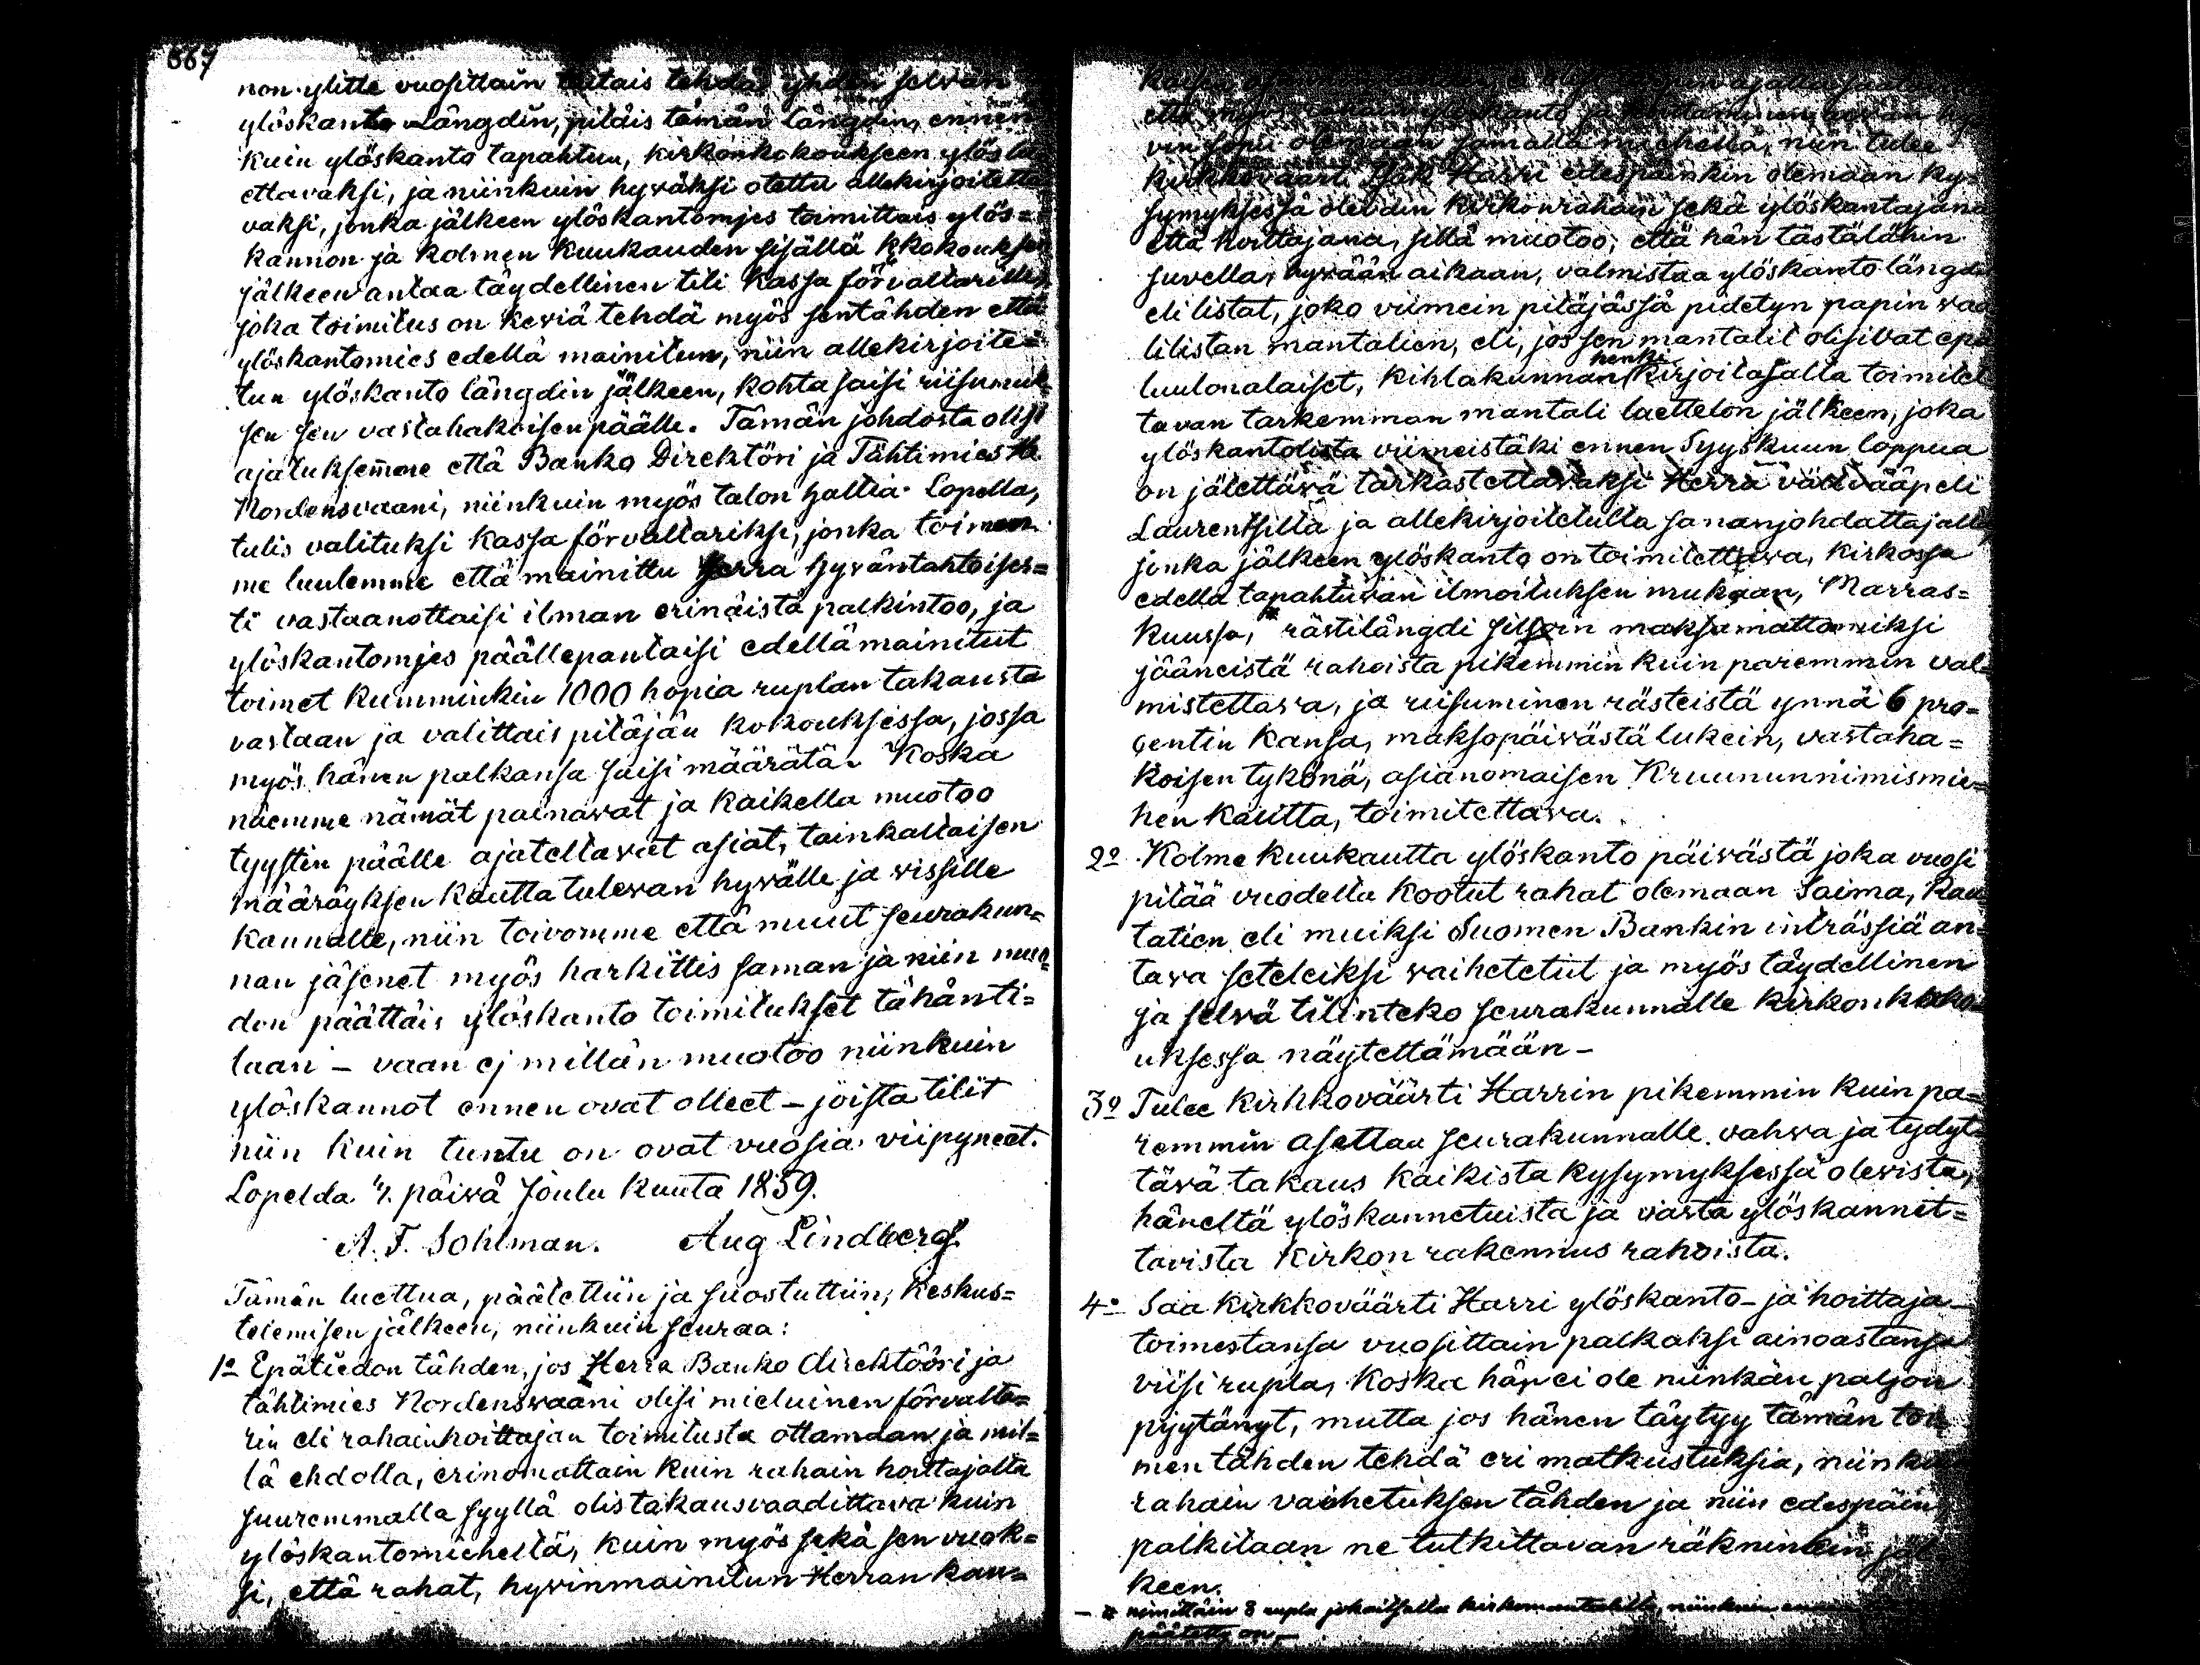 667
non ylitte vuosittain tehdä yhden selvän
ylöskanto Längdin, pitäis tämän längdin, ennen
kuin ylöskanto tapahtuu, kirkonkokoukseen
ettavaksi, ja niinkuin hyväksi otettu allekirjoitetta
vaksi, jonka jälkeen ylöskantomjes toimittais ylös=
kannon ja kolmen kuukauden sisällä kkokouksen
jälkeen antaa täydellinen tili kassa förvaltarille,
joka toimitus on keviä tehdä myös sentähden että
ylöskantomies edellä mainitun, niin allekirjoite=
tun ylöskanto längdin jälkeen, kohta saisi riisumuk=
sen sen vastahakoisen päälle. Tämän johdosta olisi
ajatuksemme että Banko Direktöri ja Tähtimies H:
Nordensvaani, niinkuin myös talon haltia Lopella,
tulis valituksi kassa förvaltariksi, jonka toimen
me luulemme että mainittu Herra hyväntahtoises=
ti vastaanottaisi ilman erinäistä palkintoo, ja
ylöskantomjes päällepantaisi edellämainitut
toimet kumminkin 1000 hopia ruplan takausta
vastaan ja valittais pitäjän kokouksessa, jossa
myös hänen palkansa saisi määrätä. Koska
näemme nämät painavat ja kaikella muotoo
tyystin päälle ajateltavat asiat, tainkaltaisen
määräyksen kautta tulevan hyvälle ja vissille
kannalle, niin toivomme että muut seurakun=
nan jäsenet myös harkittis saman ja niin muo=
don päättäis ylöskanto toimitukset tähänti=
laan – vaan ej millän muotoo niinkuin
ylöskannot ennen ovat olleet – joista tilit
niin kuin tuntu on ovat vuosia viipyneet.
Lopelda 4. päivä Joulu kuuta 1859.
A. F. Sohlman. Aug Lindberg.
Tämän luettua, päätettiin ja suostuttiin, keskus=
telemisen jälkeen, niinkuin seuraa:
1o Epätiedon tähden, jos Herra Banko direktööri ja
tähtimies Nordensvaani olisi mieluinen förvalta=
rin eli rahainhoittajan toimitusta ottamaan ja mil=
lä ehdolla, erinomattain kuin rahain hoittajalta
suuremmalla syyllä olis takaus vaadittava kuin
ylöskantomieheltä, kuin myös sekä sen vuok=
si, että rahat, hyvinmainitun Herran kau=
että myös ylöskanto ja
vin sopii olemaan samalla miehellä, niin tulee
kirkkoväärt. Isak Harri edespäinkin olemaan ky=
symyksessä olevdin kirkonrahain sekä ylöskantajana
että hoittajana, sillä muotoo, että hän tästälähin
suvella, hyvään aikaan, valmistaa ylöskanto längdi
eli listat, joko viimein pitäjässä pidetyn papin vaa
lilistan mantalien, eli, jos sen mantalit olisivat epä
luulonalaiset, kihlakunnan henki kirjoitajalta toimitet
tavan tarkemman mantali luettelon jälkeen, joka
ylöskantolista viimeistäki ennen Syyskuun loppua
on jätettävä tarkastettavaksi Herra väävääpeli
Laurentsilla ja allekirjoitetulla sananjohdattajalla,
jonka jälkeen ylöskanto on toimitettava, kirkossa
edellä tapahtuvan ilmoituksen mukaan, Marras=
kuussa, * rästilängdi silloin maksamattomiksi
jääneistä rahoista pikemmin kuin paremmin val=
mistettava, ja riisuminen rästeistä ynnä 6 pro=
centin kansa, maksopäivästä lukein, vastaha=
koisen tykönä, asianomaisen Kruununnimismie=
hen kautta, toimitettava.
2o Kolme kuukautta ylöskanto päivästä joka vuosi
pitää vuodella kootut rahat olemaan Saima, kau
tatien eli muiksi Suomen Bankin inträssiä an=
tava seteleiksi vaihetetut ja myös täydellinen
ja selvä tilinteko seurakunnalle kirkonkoko=
uksessa näytettämään –
3o Tulee Kirkkoväärti Harrin pikemmin kuin pa=
remmin asettaa seurakunnalle vahva ja tydyt=
tävä takaus kaikista kysymyksessä olevista,
häneltä ylöskannetuista ja vasta ylöskannet=
tavista kirkon rakennus rahoista.
4o Saa kirkkoväärti Harri ylöskanto- ja hoittaja-
toimestansa vuosittain palkaksi ainoastansa
viisi rupla, koska hän ei ole niinkän paljon
pyytänyt, mutta jos hänen täytyy tämän toi
men tähden tehdä eri matkustuksia, niinkui
rahain vaihetuksen tähden ja niin edespäin,
palkitaan ne tutkittavan räkningin jäl
keen.
– * nimittäin 8 rupla jokaitsella kirkomantalilla, niinkuin
päätetty on –